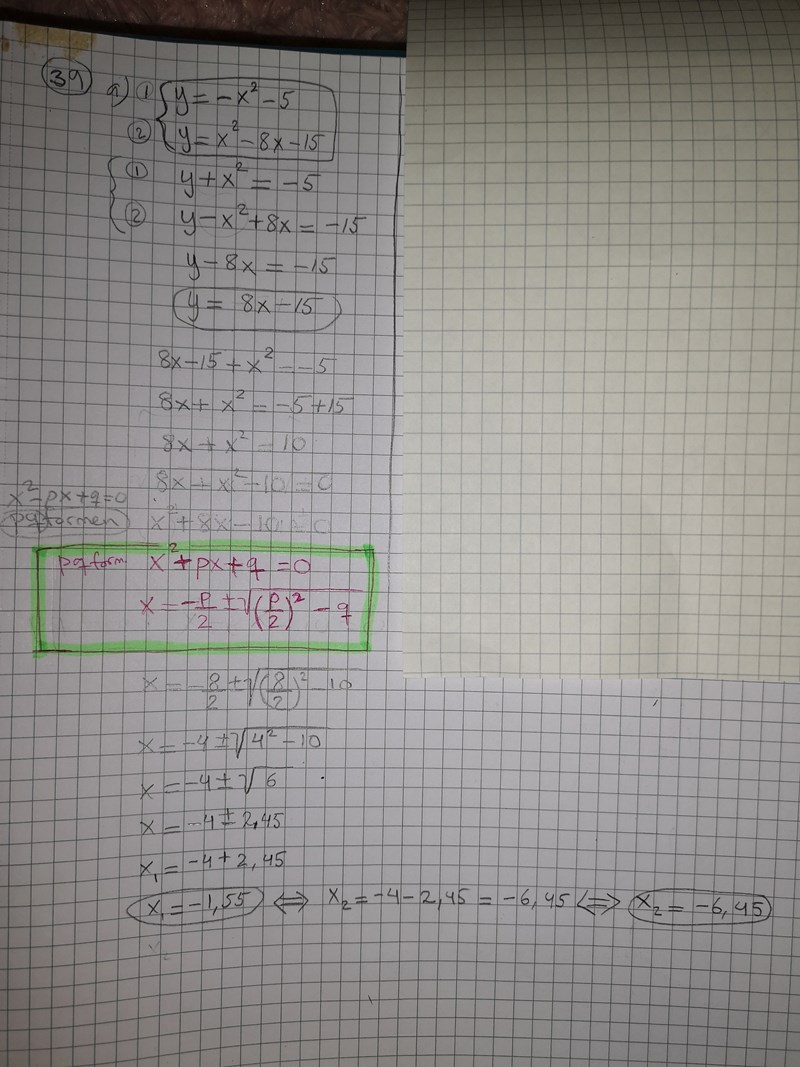 39 a) ① y = -x² - 5
② y = x² - 8x - 15
① y + x² = -5
② y - x² + 8x = -15
y - 8x = -15
y = 8x - 15
8x - 15 + x² = -5
8x + x² = -5 + 15
8x + x² = 10
8x + x² - 10 = 0
x² - px + q = 0
pqformen x² + 8x - 10 = 0
pqform x² + px + q = 0
x = -p/2 ± √((p/2)² - q)
x = -8/2 ± √((8/2)² - 10)
x = -4 ± √(4² - 10)
x = -4 ± √6
x = -4 ± 2,45
x₁ = -4 + 2,45
x₁ = -1,55 ⇔ x₂ = -4 - 2,45 = -6,45 ⇔ x₂ = -6,45